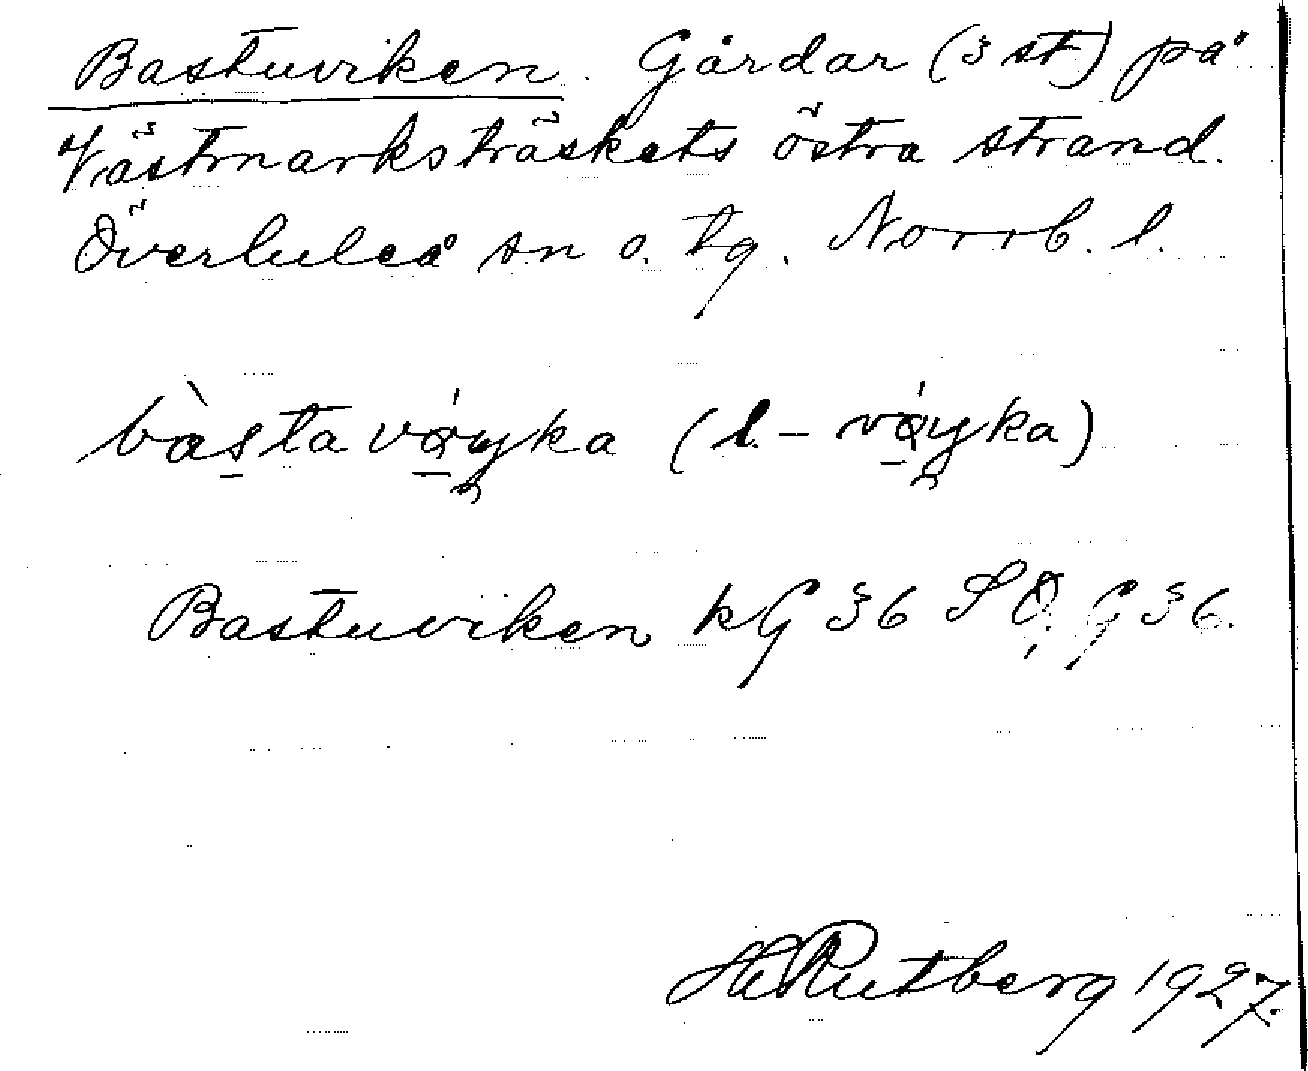 Bastuviken. Gårdar (3 st) på
Västmarksträskets östra strand.
Överluleå sn o. tg. Norrb. l.
bàstavá̱yka (l. -vá̱yka)
Bastuviken kG 36 SO, G 36.
H. Rutberg 1927.